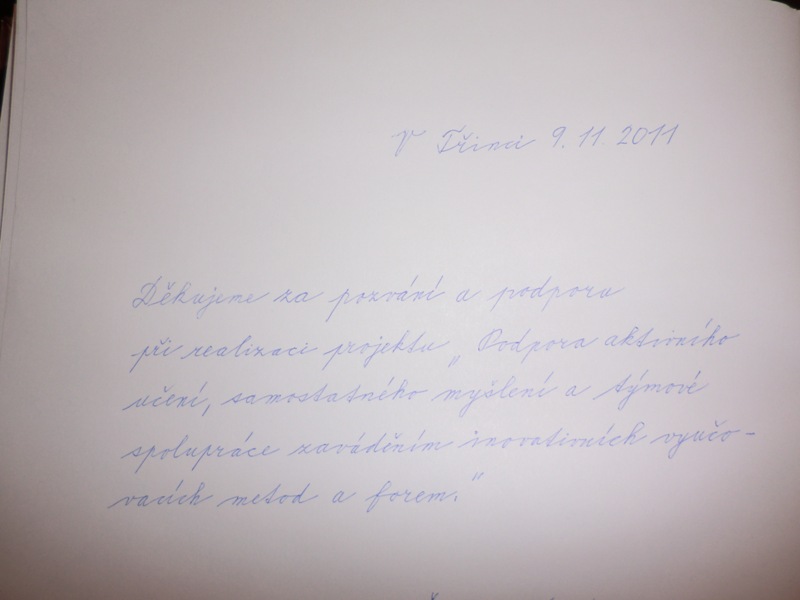 V Třinci 9. 11. 2011
Děkujeme za pozvání a podporu
při realizaci projektu „Podpora aktivního
učení, samostatného myšlení a týmové
spolupráce zaváděním inovativních vyučo-
vacích metod a forem."